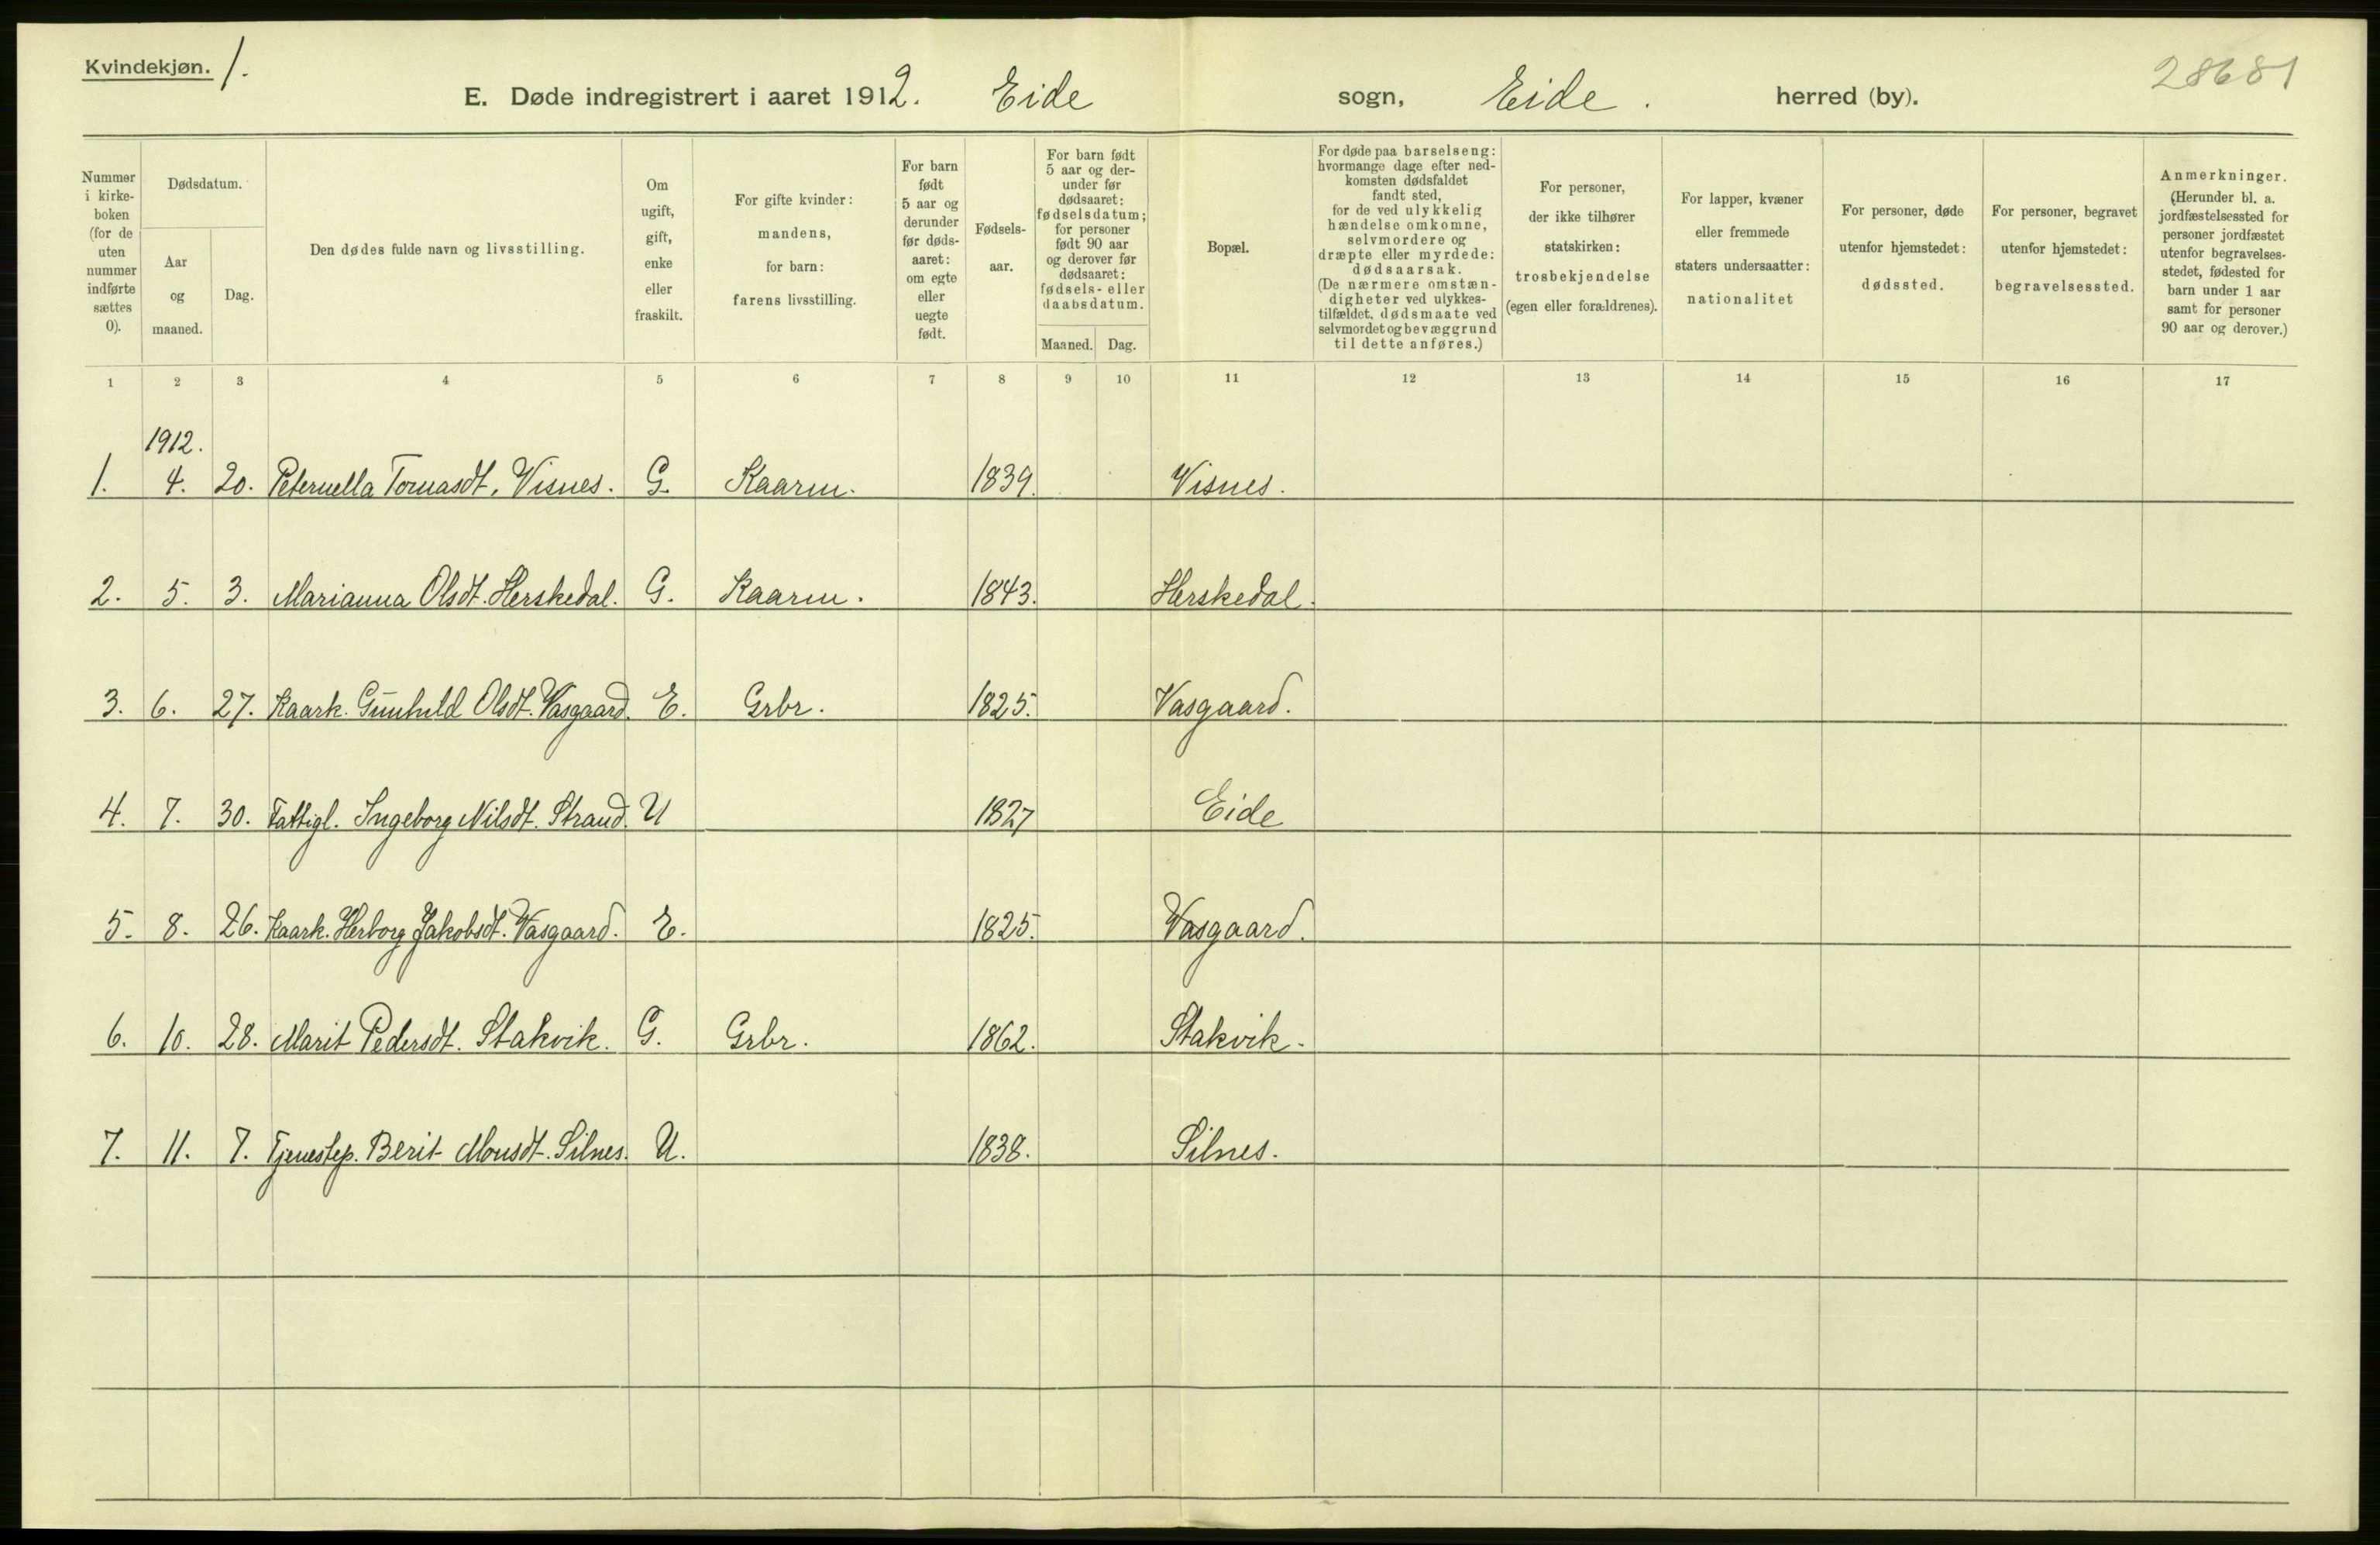 Kvindekjøn. 1.
28681
E. Døde indregistrert i aaret 1912. Eide sogn, Eide. herred (by).
Nummer i kirkeboken (for de uten nummer indførte sættes 0).
Dødsdatum.
Aar og maaned.
Dag.
Den dødes fulde navn og livsstilling.
Om ugift, gift, enke eller fraskilt.
For gifte kvinder: mandens, for barn: farens livsstilling.
For barn født 5 aar og derunder før dødsaaret: om egte eller uegte født.
Fødselsaar.
For barn født 5 aar og derunder før dødsaaret: fødselsdatum; for personer født 90 aar og derover før dødsaaret: fødsels- eller daabsdatum.
Maaned. Dag.
Bopæl.
For døde paa barselseng: hvormange dage efter nedkomsten dødsfaldet fandt sted, for de ved ulykkelig hændelse omkomne, selvmordere og dræpte eller myrdede: dødsaarsak. (De nærmere omstændigheter ved ulykkestilfældet, dødsmaate ved selvmordet og bevæggrund til dette anføres.)
For personer, der ikke tilhører statskirken: trosbekjendelse (egen eller forældrenes).
For lapper, kvæner eller fremmede staters undersaatter: nationalitet
For personer, døde utenfor hjemstedet: dødssted.
For personer, begravet utenfor hjemstedet: begravelsessted.
Anmerkninger. (Herunder bl. a. jordfæstelsessted for personer jordfæstet utenfor begravelsesstedet, fødested for barn under 1 aar samt for personer 90 aar og derover.)
1 2 3 4 5 6 7 8 9 10 11 12 13 14 15 16 17
1912.
1. 4. 20. Peternella Tomasdt. Visnes. G. Kaarm. 1839. Visnes.
2. 5. 3. Marianna Olsdt. Herskedal. G. Kaarm. 1843. Herskedal.
3. 6. 27. Kaark. Gunhild Olsdt. Vasgaard. E. Grbr. 1825. Vasgaard.
4. 7. 30. Fattigl. Ingeborg Nilsdt. Strand. U 1827 Eide
5. 8. 26. Kaark. Herborg Jakobsdt. Vasgaard. E. 1825. Vasgaard.
6. 10. 28. Marit Pedersdt. Stakvik. G. Grbr. 1862. Stakvik.
7. 11. 7. Tjenestep. Berit Monsdt. Silnes. U. 1838. Silnes.